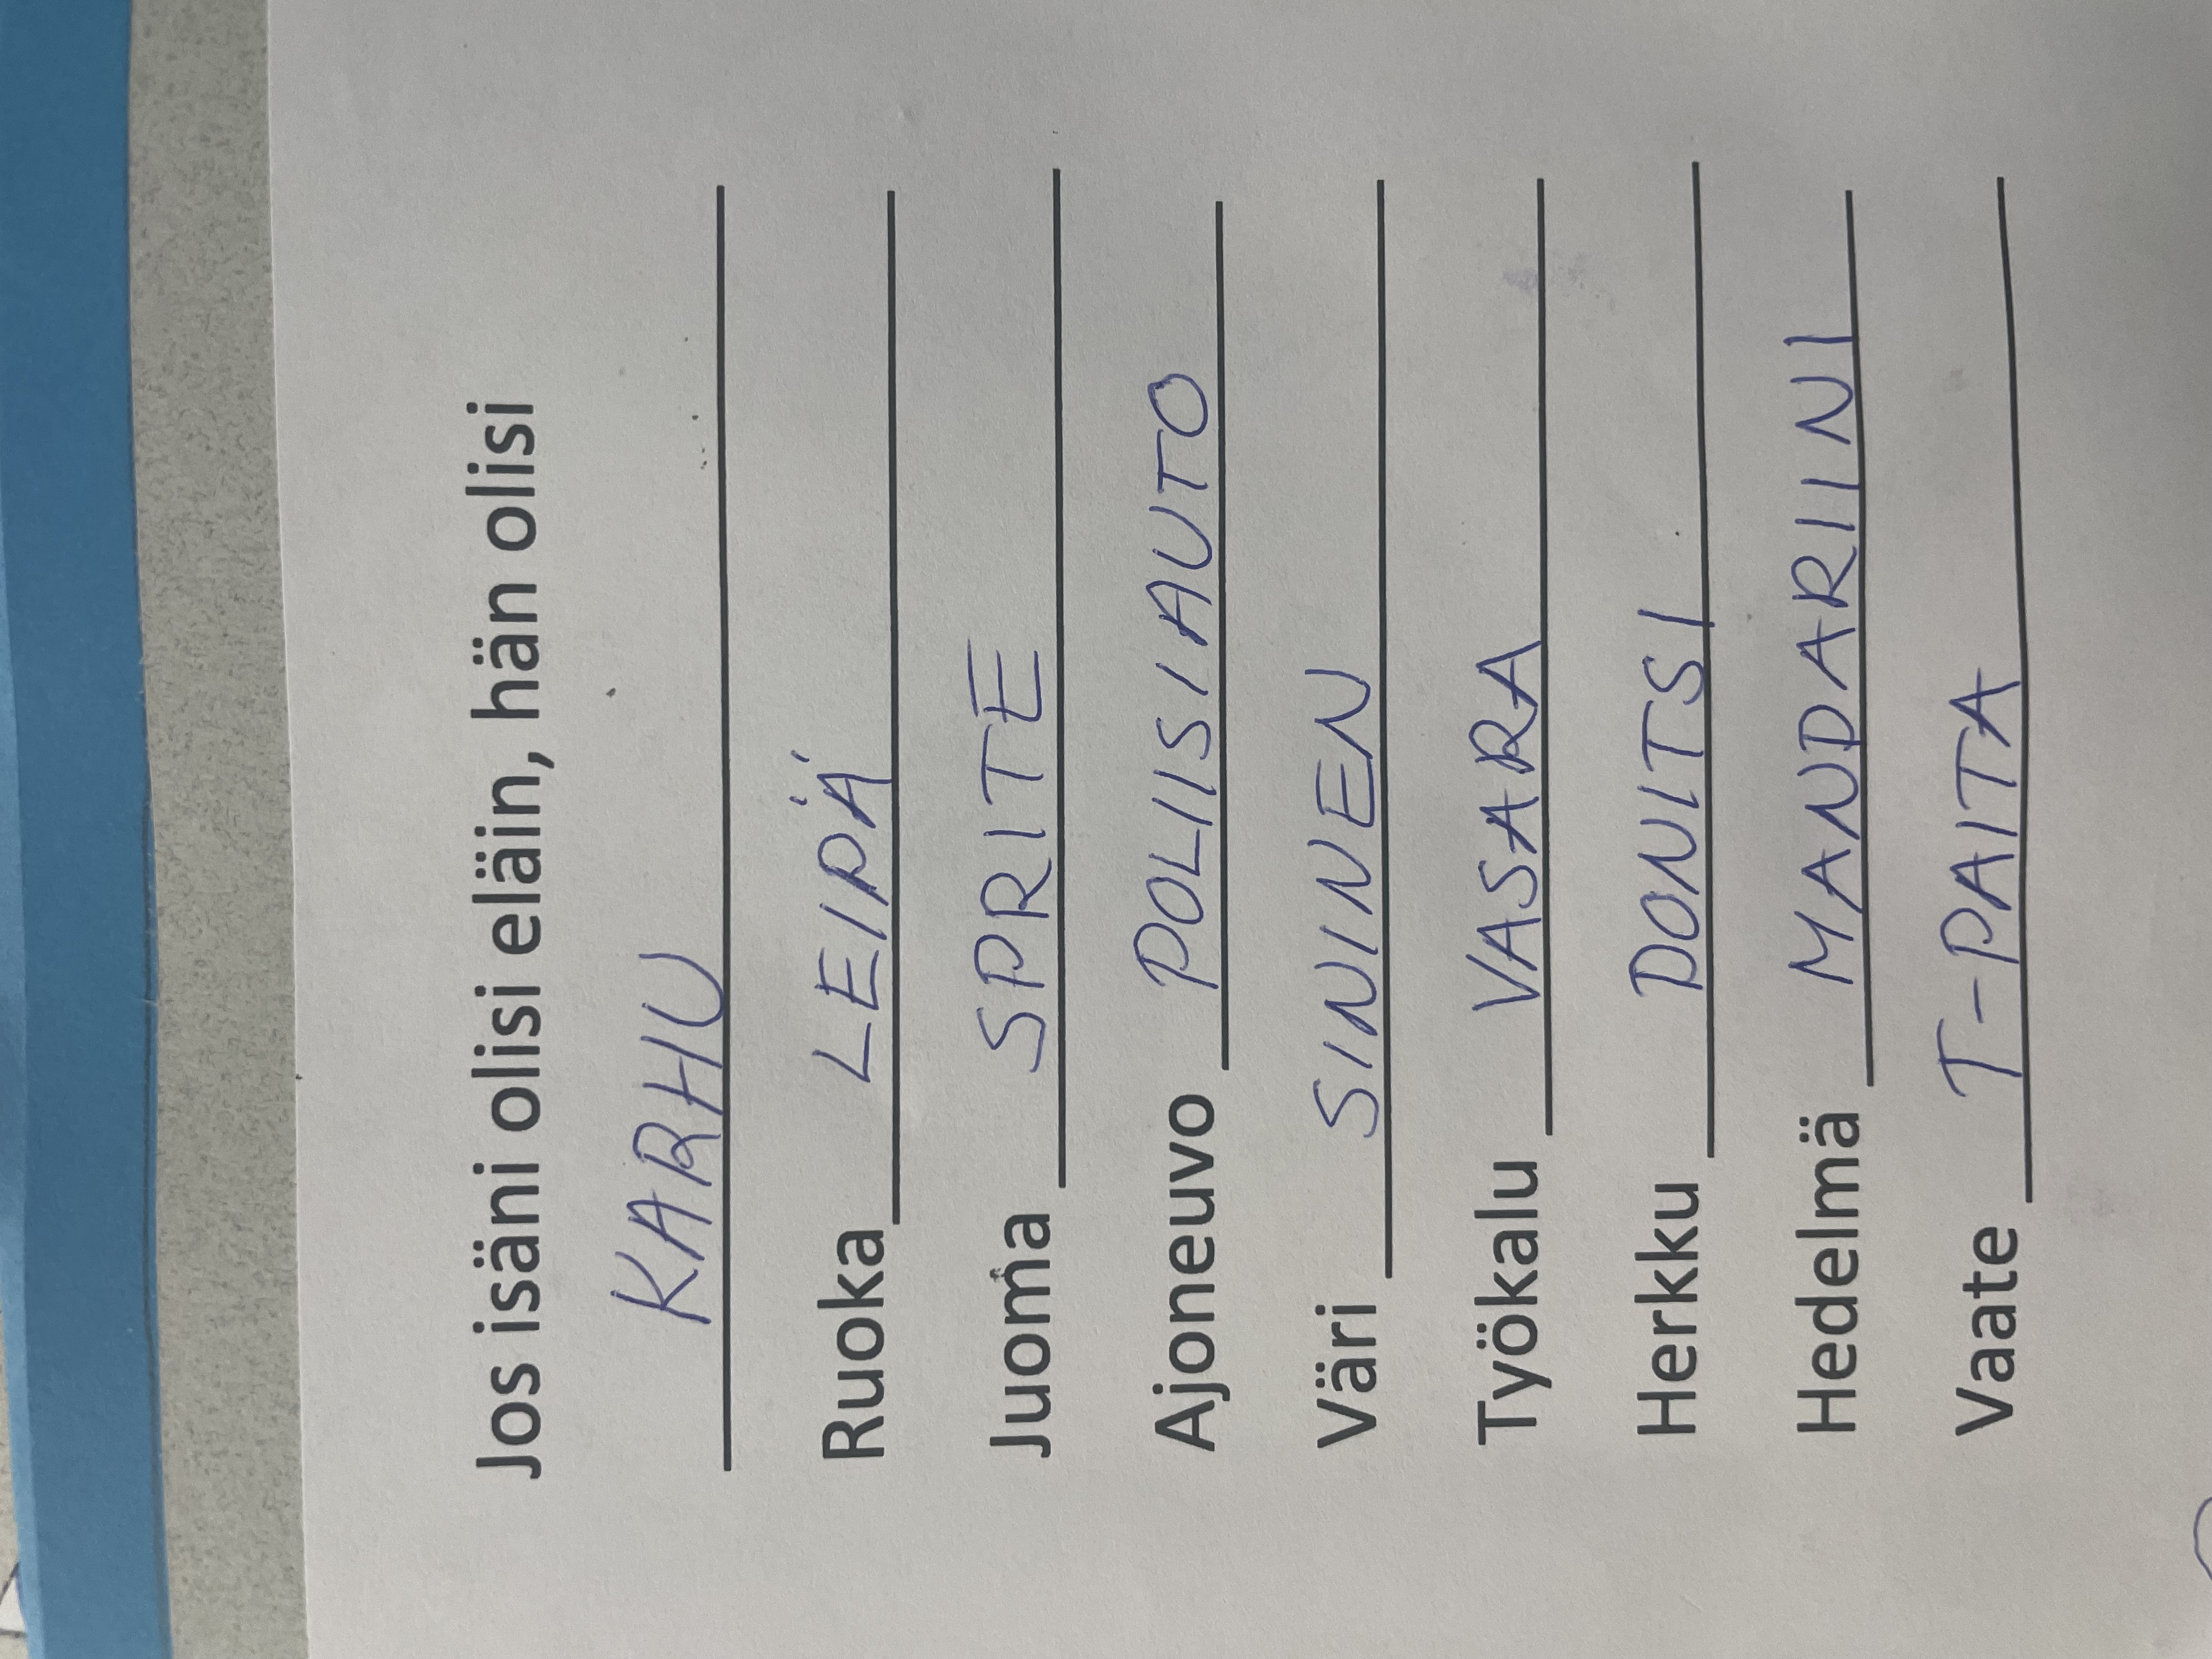 Jos isäni olisi eläin, hän olisi
KARHU
Ruoka LEIPÄ
Juoma SPRITE
Ajoneuvo POLIISIAUTO
Väri SININEN
Työkalu VASARA
Herkku DONITSI
Hedelmä MANDARIINI
Vaate T-PAITA